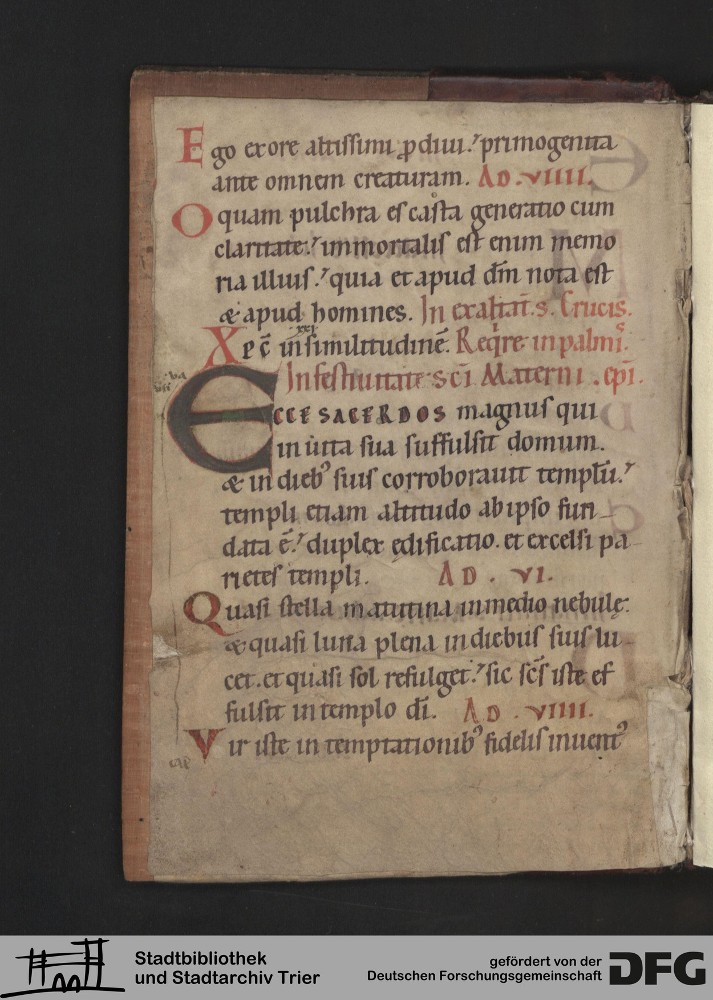 Ego ex ore altissimi ꝓdiui. primogenita
ante omnem creaturam. AD. VIIII.
O quam pulchra es casta generatio cum
claritate. immortalis est enim memo
ria illius. quia et apud dm̄ nota est
& apud homines. In exaltat̄. s. Crucis.
Xpc̄ in similitudinē. Reqͥre in palmiˢ.
In festiuitate sc̄i Materni. ep̄i.
ECCE SACERDOS magnus qui
in uita sua suffulsit domum.
& in diebꝰ suis corroborauit templū.
templi etiam altitudo ab ipso fun
data ē. duplex ędificatio. et excelsi pa
rietes templi. AD. VI.
Quasi stella matutina in medio nebulę.
& quasi luna plena in diebus suis lu
cet. et quasi sol refulget. sic sc̄s iste ef
fulsit in templo dī. AD. VIIII.
Vir iste in temptationibꝰ fidelis inuentꝰ
cap
Stadtbibliothek
und Stadtarchiv Trier
gefördert von der
Deutschen Forschungsgemeinschaft
DFG